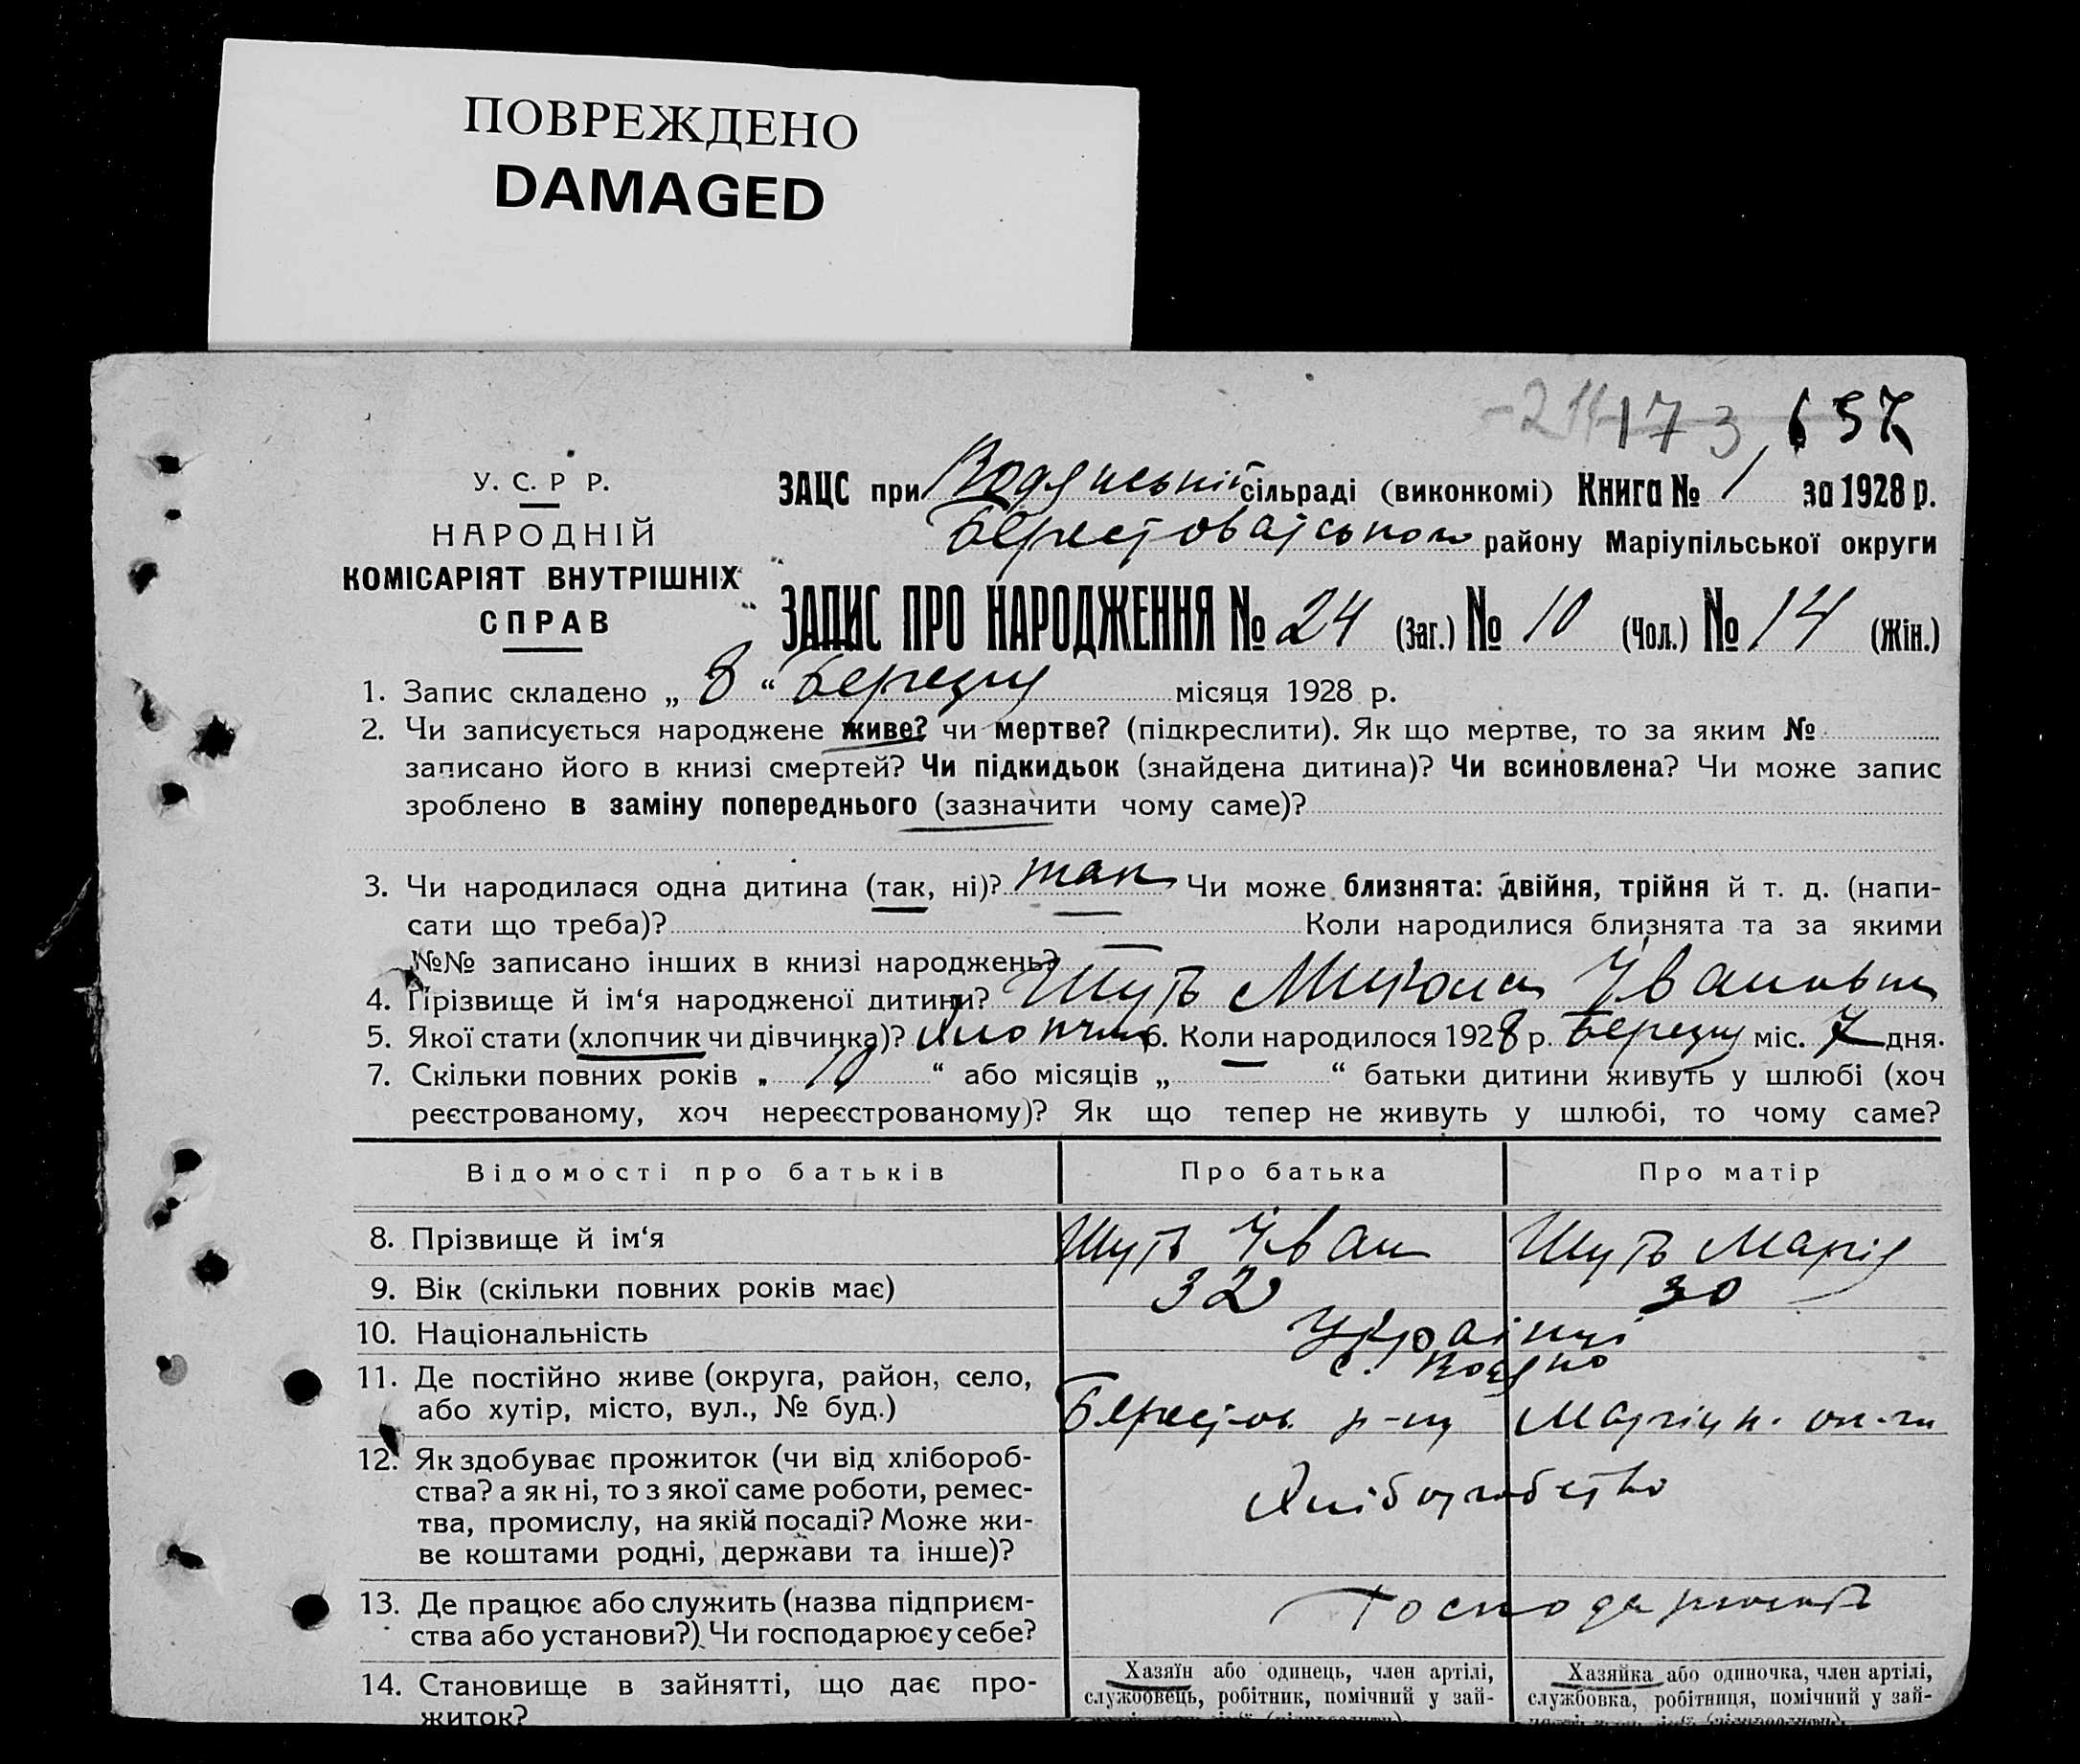 ПОВРЕЖДЕНО
DAMAGED
173 657
У. С. Р Р.
НАРОДНІЙ
КОМІСАРІЯТ ВНУТРІШНІХ
СПРАВ
ЗАЦС при Водянській сільраді (виконкомі) Книга № 1 за 1928 р.
Берестоватського району Маріупільської округи
ЗАПИС ПРО НАРОДЖЕННЯ № 24 (Заг.) № 10 (Чол.) № 14 (Жін.)
1. Запис складено „ 8 “ Березня місяця 1928 р.
2. Чи записується народжене живе? чи мертве? (підкреслити). Як що мертве, то за яким №
записано його в книзі смертей? Чи підкидьок (знайдена дитина)? Чи всиновлена? Чи може запис
зроблено в заміну попереднього (зазначити чому саме)?
3. Чи народилася одна дитина (так, ні)? так Чи може близнята: двійня, трійня й т. д. (напи-
сати що треба)? — Коли народилися близнята та за якими
№№ записано інших в книзі народжень? —
4. Прізвище й ім‘я народженої дитини? Шуть Микола Іванович
5. Якої стати (хлопчик чи дівчинка)? Хлопчик 6. Коли народилося 1928 р. Березня міс. 7 дня.
7. Скільки повних років „ 10 “ або місяців „ — “ батьки дитини живуть у шлюбі (хоч
реєстрованому, хоч нереєстрованому)? Як що тепер не живуть у шлюбі, то чому саме?
Відомості про батьків Про батька Про матір
8. Прізвище й ім‘я Шуть Іван Шуть Марія
9. Вік (скільки повних років має) 32 30
10. Національність Українці
11. Де постійно живе (округа, район, село, с. Водяно
або хутір, місто, вул., № буд.) Берестов. р-ну Маріуп. ок-ги
12. Як здобуває прожиток (чи від хлібороб-
ства? а як ні, то з якої саме роботи, ремес- Хліборобство
тва, промислу, на якій посаді? Може жи-
ве коштами родні, держави та інше)?
13. Де працює або служить (назва підприєм- Господарюють
ства або установи?) Чи господарює у себе?
14. Становище в зайнятті, що дає про- Хазяїн або одинець, член артілі, Хазяйка або одиночка, член артілі,
житок? службовець, робітник, помічний у зай- службовка, робітниця, помічний у зай-